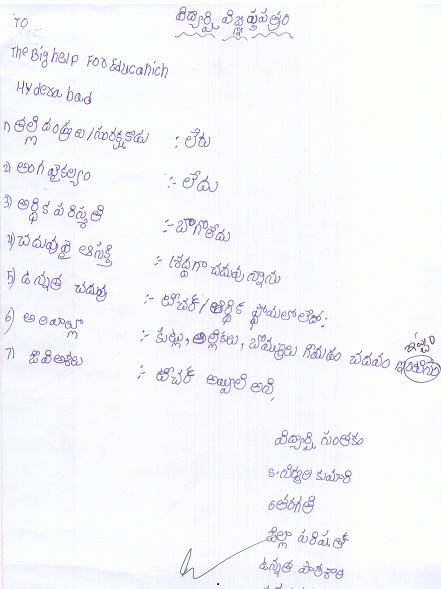 విద్యార్థి విజ్ఞప్తిపత్రం
TO
The Big help FOR Educanich
HYdera bad
1) తల్లి దండ్రులు/సంరక్షకుడు :- లేరు
2) అంగ వైకల్యం :- లేదు
3) ఆర్థిక పరిస్థితి :- బాగోలేదు
4) చదువుపై ఆసక్తి :- శ్రద్దగా చదువుచున్నాను
5) ఉన్నత చదువు :- టీచర్/ఆర్థిక స్థోమతలేదు.
6) అలవాట్లు :- కుట్లు, అల్లికలు, బొమ్మలు గీయడం చదవం ఇష్టం
7) ఆశలు :- టీచర్ అవ్వాలి అని,
విద్యార్థి సంతకం
కుమారి
6తరగతి
జిల్లా పరిషత్
ఉన్నత పాఠశాల